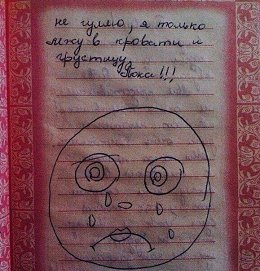 не гуляю, я только
лежу в кровати и
грустицу
Пока!!!